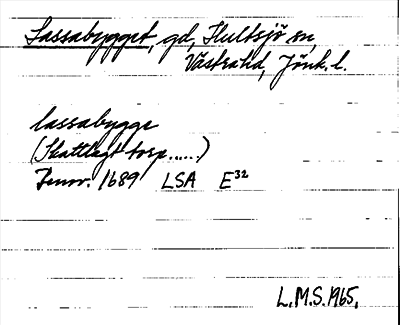 Lassabygget, gd, Hultsjö sn,
Västra hd, Jönk. l.
lassabygge
(Skattlagt torp......)
Invr. 1689 LSA E³²
L.M.S. 1965,